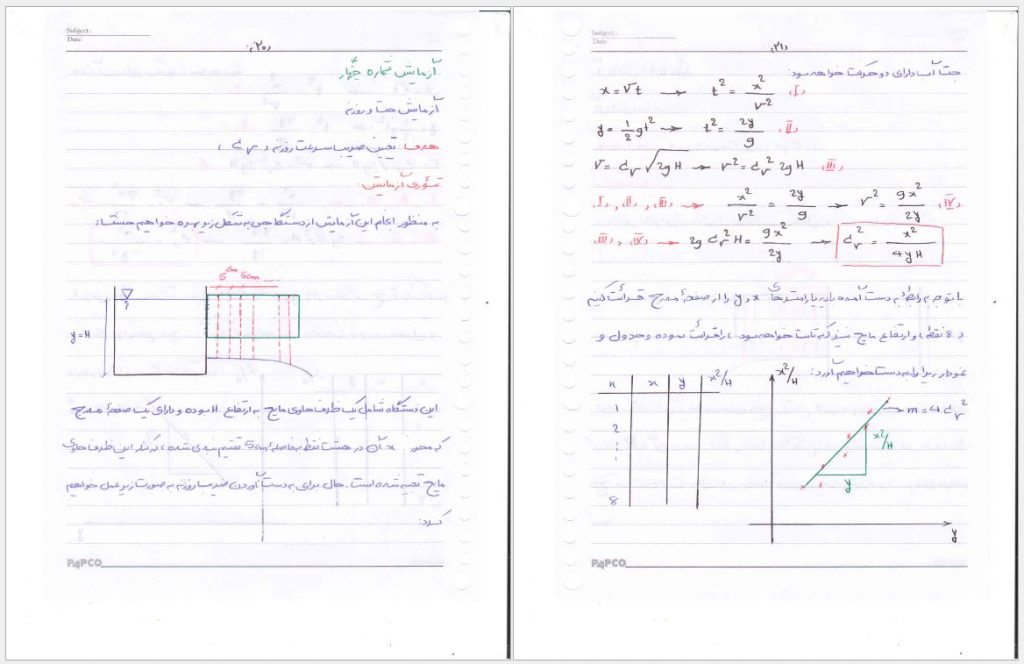 Subject:
Date
«۲۰»
آزمایش شماره چهار
آزمایش جت و روزنه
هدف: تعیین ضریب سرعت روزنه (Cv)
تئوری آزمایش:
به منظور انجام این آزمایش از دستگاهی به شکل زیر بهره خواهیم جست:
5 cm 5cm
y=H
این دستگاه شامل یک ظرف حاوی مایع به ارتفاع H بوده و دارای یک صفحهٔ مدرج
که محور x آن در هشت نقطه به فاصلهٔ 5cm تقسیم بندی شده، در کنار این ظرف حاوی
مایع تعبیه شده است. حال برای به دست آوردن ضریب روزنه به صورت زیر عمل خواهیم
کرد:
PAPCO
Subject:
Date
«۲۱»
جت آب دارای دو حرکت خواهد بود:
x = Vt → t² = x²/V² (I)
y = 1/2 gt² → t² = 2y/g (II)
V = Cv √2gH → V² = Cv² 2gH (III)
(I), (II), (III) → x²/V² = 2y/g → V² = gx²/2y (IV)
(III), (IV) → 2g Cv² H = gx²/2y → Cv² = x²/4yH
با توجه به رابطهٔ به دست آمده باید پارامترهای x و y را از صفحهٔ مدرج قرائت کنیم
(8 نقطه) و ارتفاع مایع نیز که ثابت خواهد بود، را قرائت نموده و جدول و
نمودار زیر را به دست خواهیم آورد:
n x y x²/H
1
2
8
x²/H
m = 4Cv²
x²/H
y
y
PAPCO